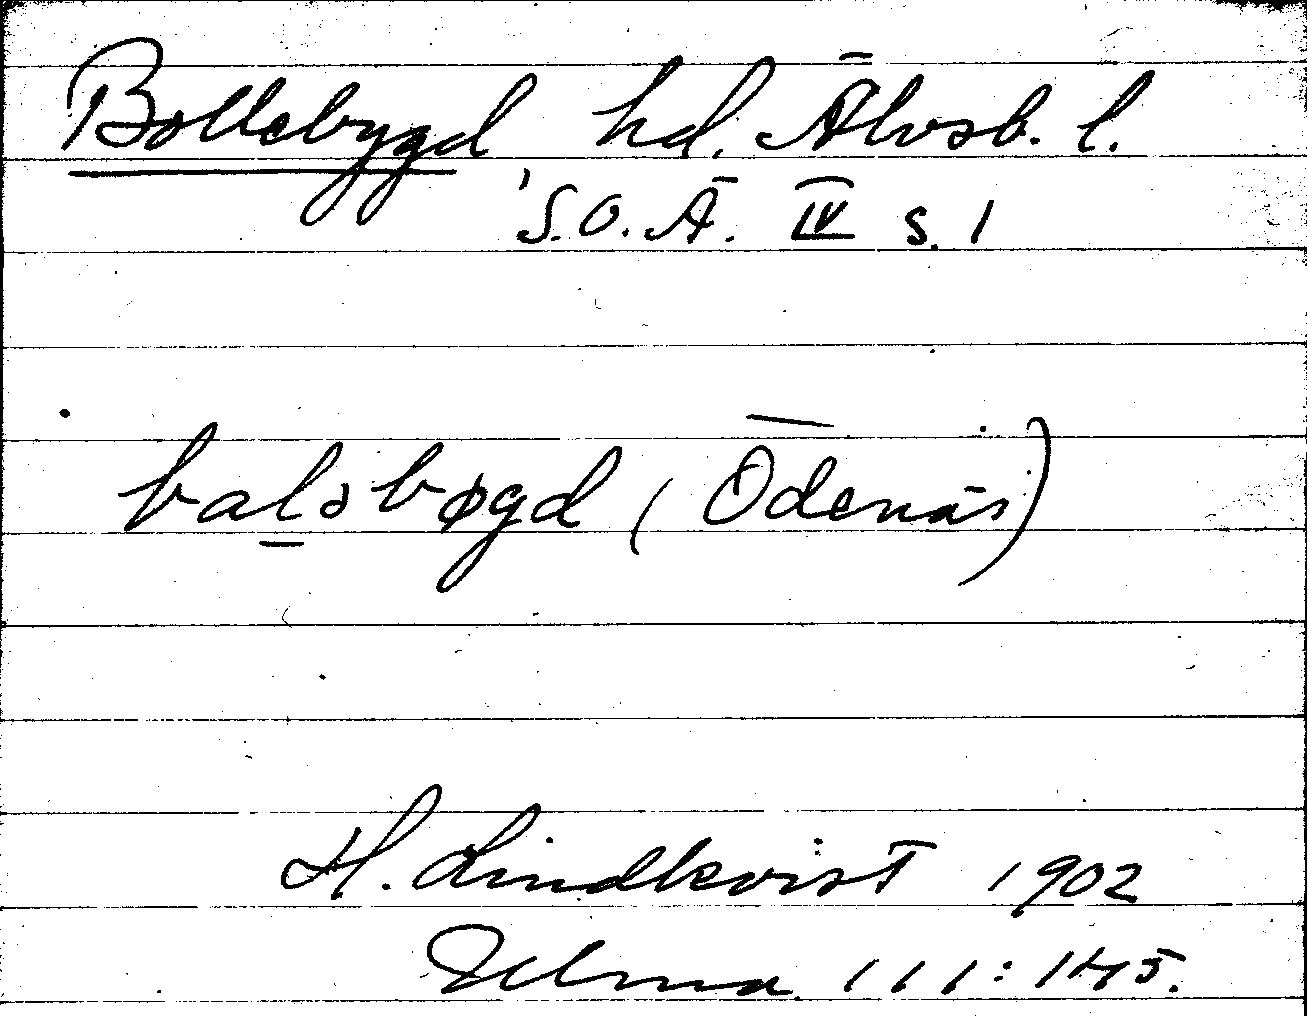 Bollebygd hd. Älvsb. l.
S.O.Ä. IV s. 1
baləbøgd (Ödenäs)
H. Lindkvist 1902
Ulma 111:145.